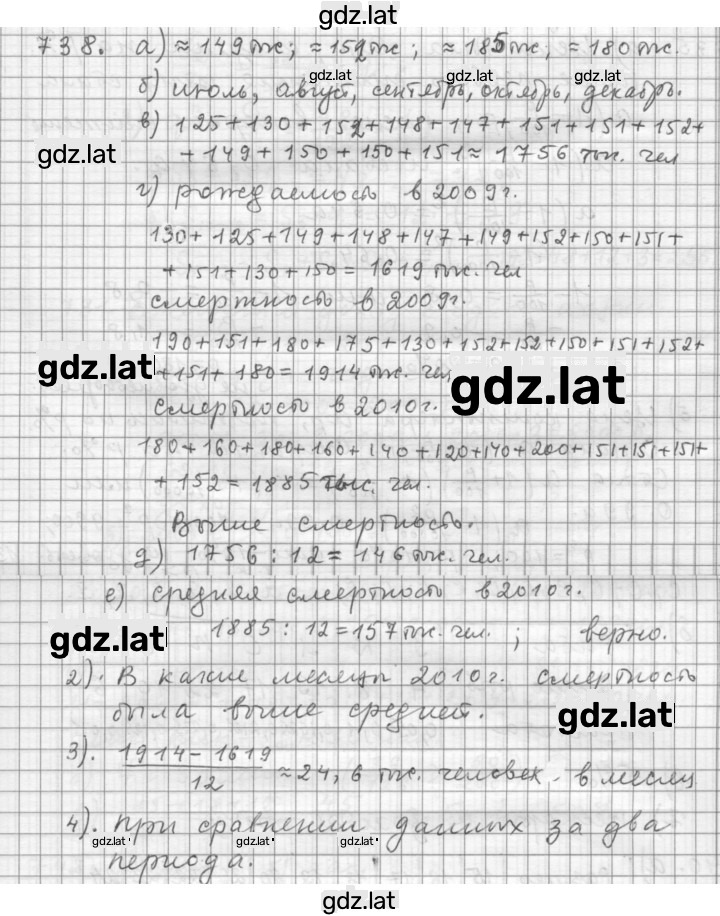 gdz.lat
738. а) ≈ 149 тыс; ≈ 152 тыс; ≈ 185 тыс; ≈ 180 тыс.
gdz.lat gdz.lat gdz.lat
б) июль, август, сентябрь, октябрь, декабрь.
в) 125+130+152+148+147+151+151+152+
gdz.lat
+149+150+150+151≈1756 тыс. чел
г) рождаемость в 2009г.
130+125+149+148+147+149+152+150+151+
+151+130+150=1619 тыс. чел
смертность в 2009г.
190+151+180+175+130+152+152+150+151+152+
gdz.lat
+151+180=1914 тыс. чел
gdz.lat
смертность в 2010г.
180+160+180+160+140+120+140+200+151+151+151+
+152=1885 тыс. чел.
Выше смертность.
д) 1756:12=146 тыс. чел.
е) средняя смертность в 2010г.
gdz.lat
1885:12=157 тыс. чел.; верно.
2). В какие месяцы 2010г. смертность
была выше средней.
gdz.lat
3). 1914-1619
12
≈24,6 тыс. человек в месяц
4). При сравнении данных за два
gdz.lat gdz.lat gdz.lat
периода.
gdz.lat